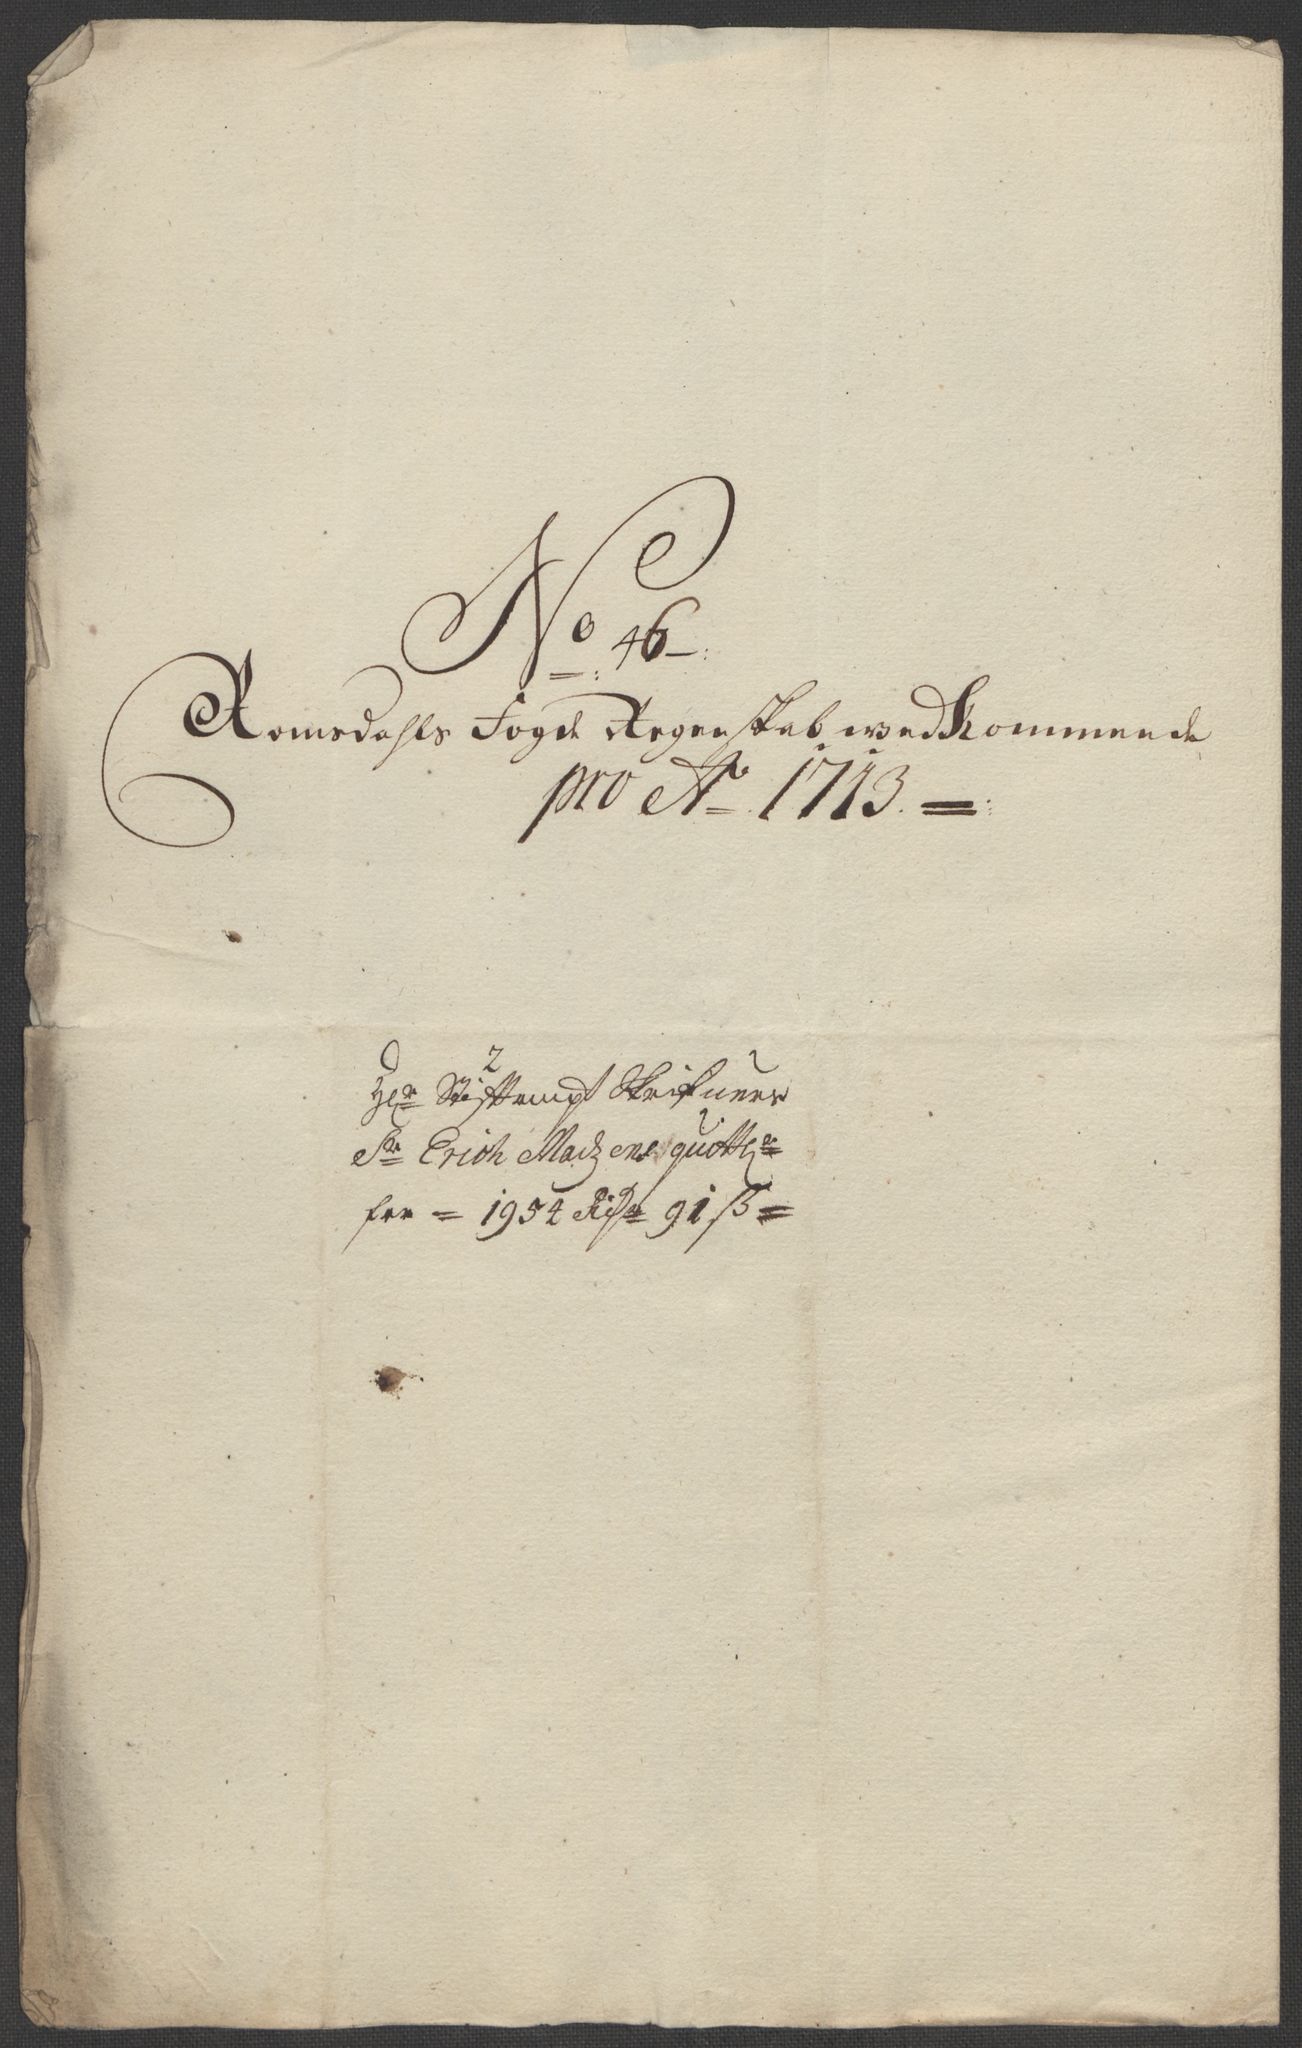 No 46
Romsdahls Fogde Regenskab wedkommende
pro Ao 1713
2
Stiftampt Skrifuers
Sr Erich Madzens quitt
for 1954 Rdr 91 ß